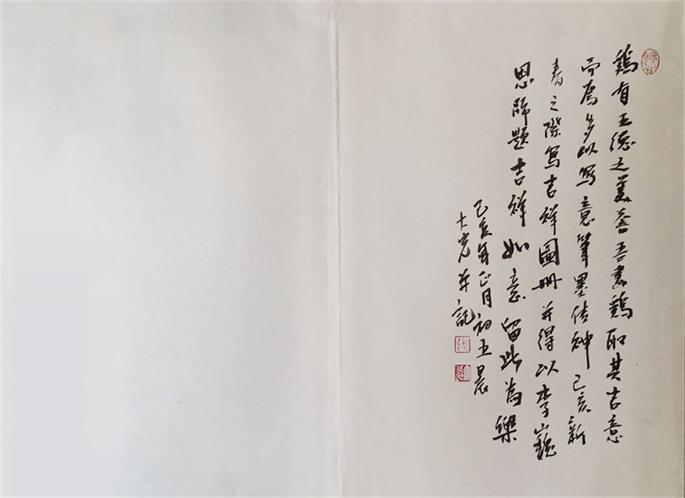 鷄有五德之美善吾畫鷄取其古意
而為多以寫意筆墨传神己亥新
春之際寫吉祥圖册并得以李巍
恩師題吉祥如意留此為樂
己亥年正月初五晨
大光并記